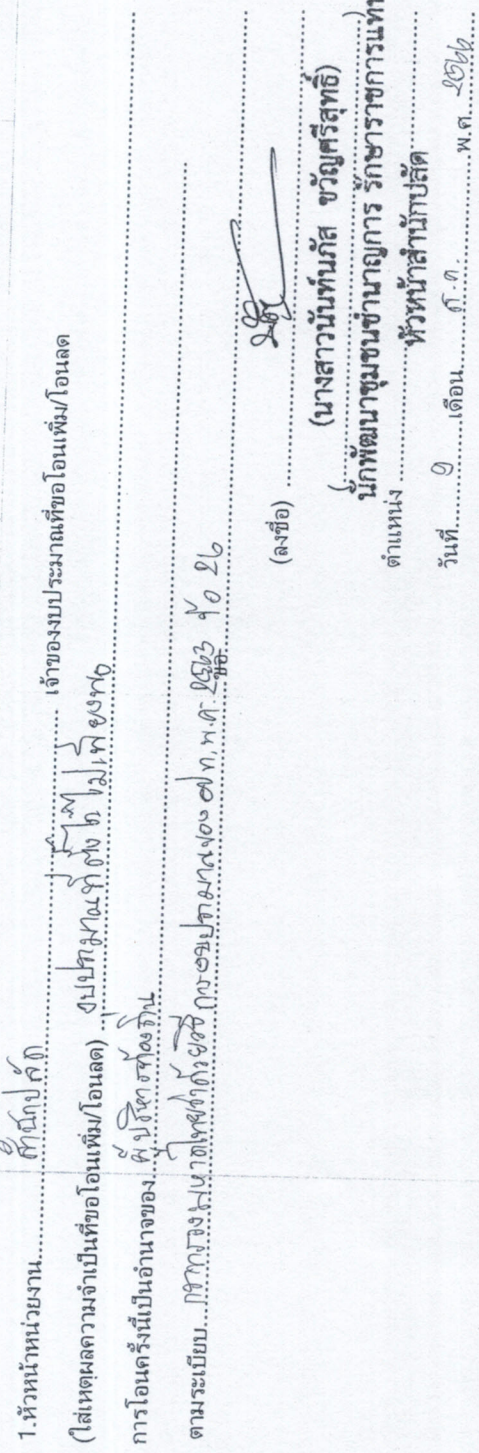 1.หัวหน้าหน่วยงาน............สำนักปลัด............ เจ้าของงบประมาณที่ขอโอนเพิ่ม/โอนลด
(ใส่เหตุผลความจำเป็นที่ขอโอนเพิ่ม/โอนลด) งบประมาณที่ตั้งไว้ไม่เพียงพอ
การโอนครั้งนี้เป็นอำนาจของ...ผู้บริหารท้องถิ่น
ตามระเบียบ...กระทรวงมหาดไทยว่าด้วยวิธีการงบประมาณของ อปท. พ.ศ. 2563 ข้อ 26
(ลงชื่อ)
(นางสาวนันท์นภัส ขวัญศรีสุทธิ์)
นักพัฒนาชุมชนชำนาญการ รักษาราชการแทน
ตำแหน่ง หัวหน้าสำนักปลัด
วันที่ 9 เดือน ส.ค. พ.ศ. 2566